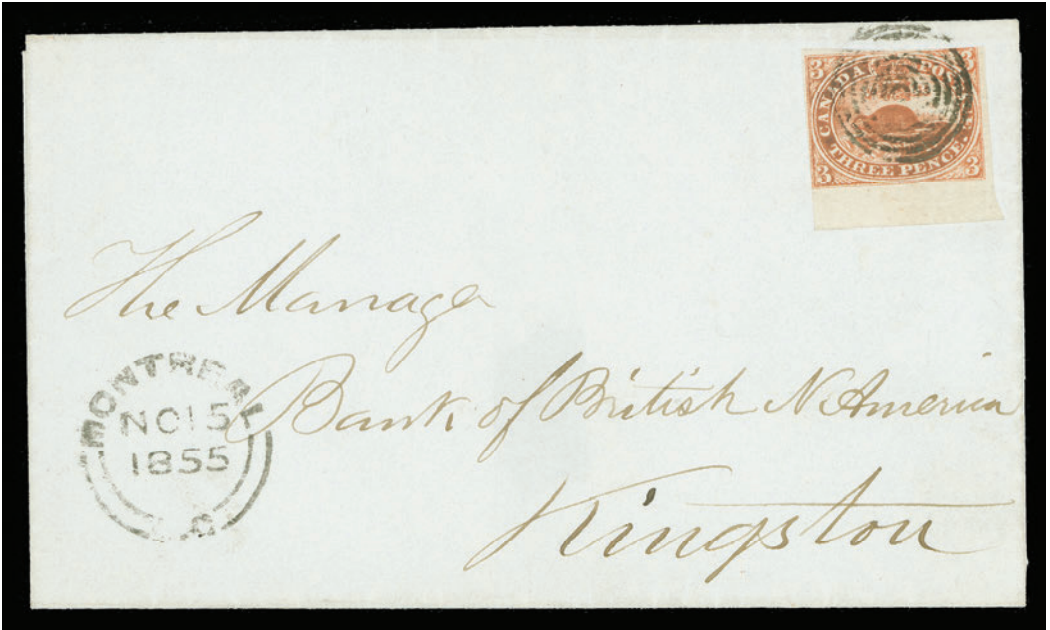 3 3
CANADA POS
THREE PENCE.
3 3
The Manager
Bank of British N. America
Kingston
MONTREAL
NO 15
1855
L.C.